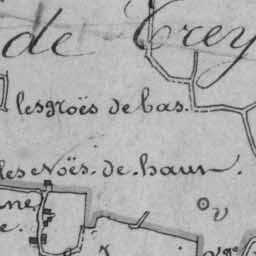 de Trey
les noës de bas.
les Noës. de. haut.
ne
e.